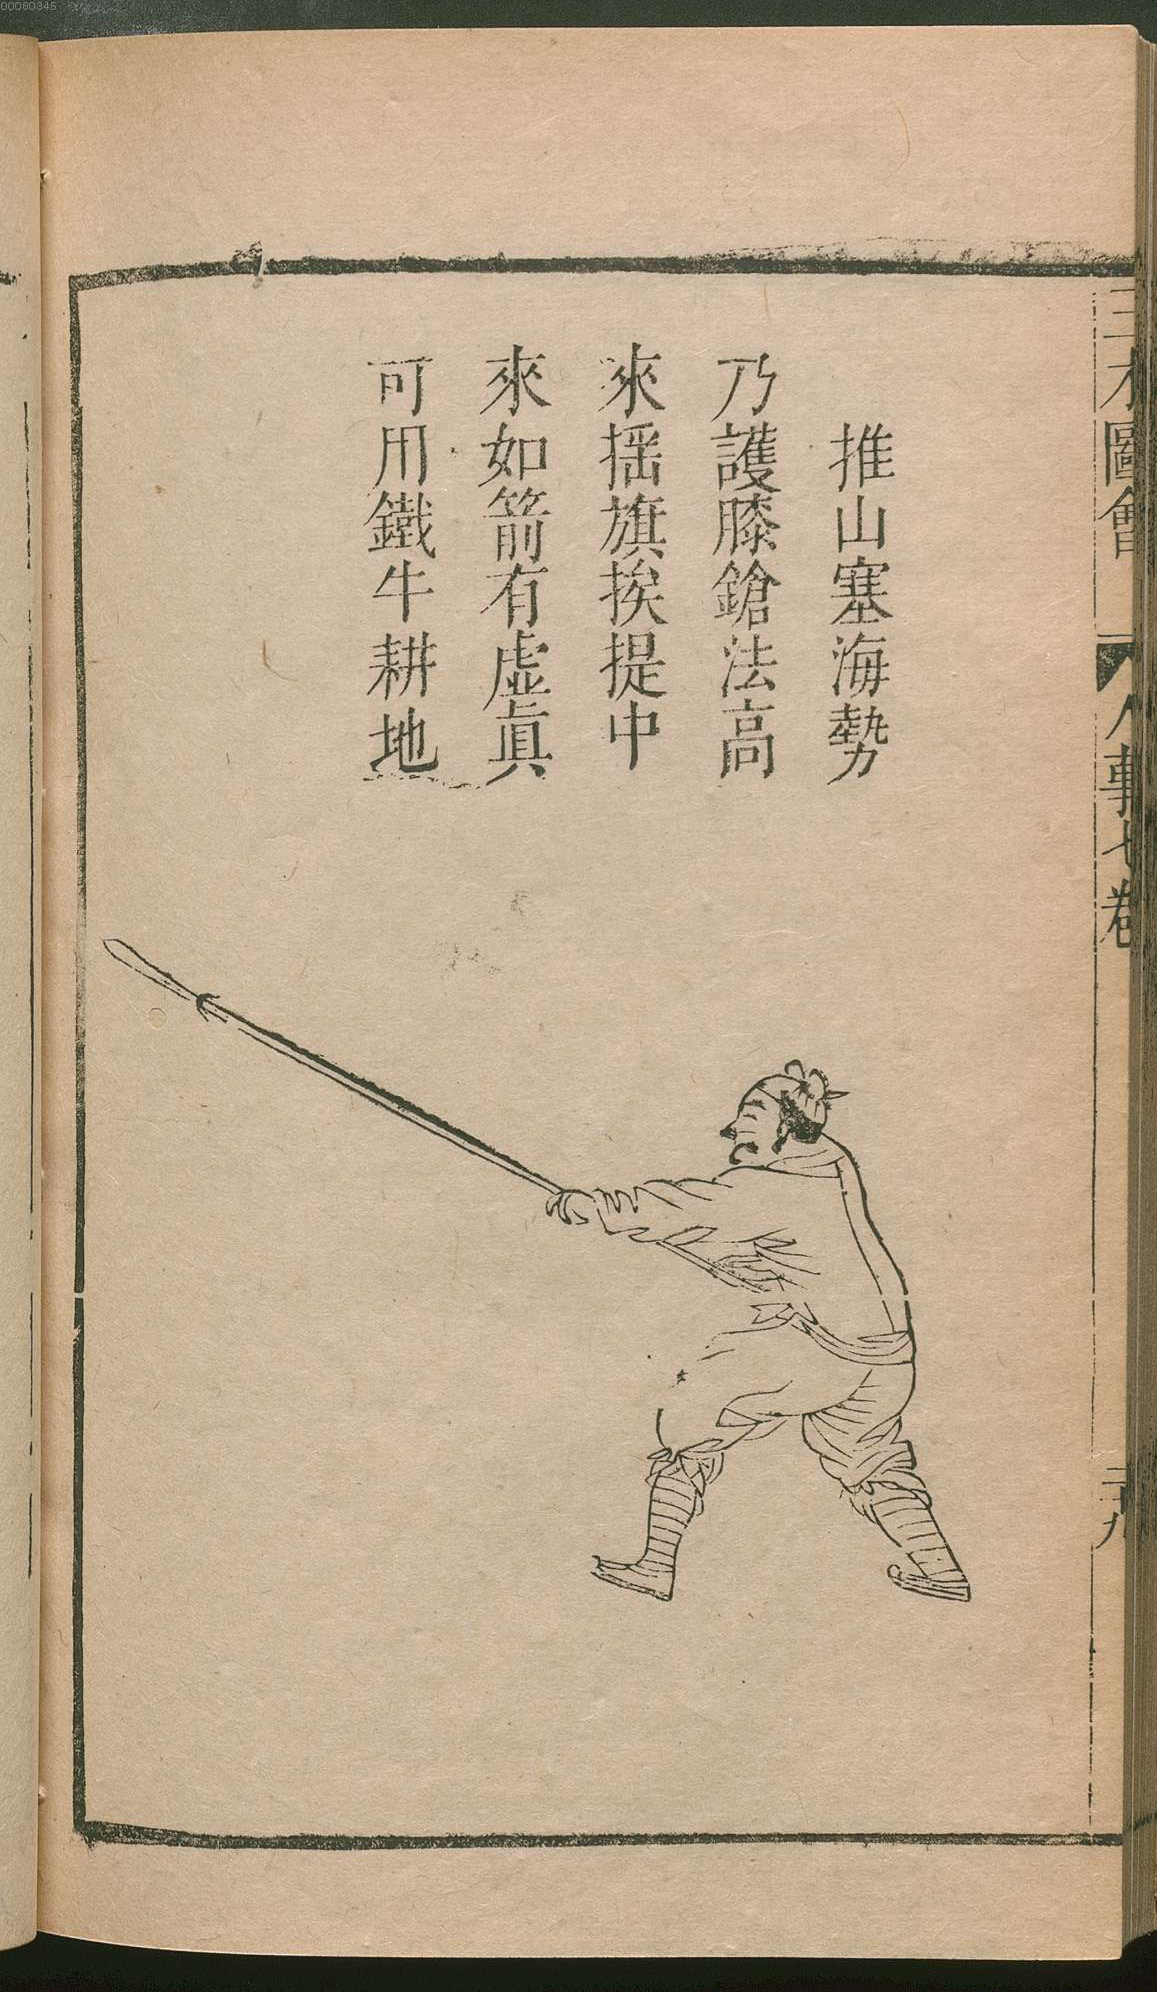 推山塞海勢
乃護膝鎗法高
來搖旗挨提中
來如箭有虛眞
可用鐵牛耕地
三才圖會
人事七卷
二十九
00080345